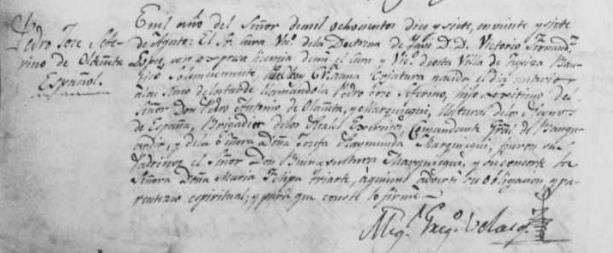 Pedro Jose Sefe-
rino de Olañeta
Español.
En el año del Señor de mil ochocientos diez y siete, en veinte y siete
de Agosto: El Sr. Cura Vic. de la Doctrina de D. D. Victorio Fernand.
Lopez, con expresa licencia de mi el Cura y Vic. de esta Villa de Tupiza Bau-
tizó Solemnemente, una Criatura nacida el dia anterior
a las de la tarde llamandola Pedro Jose Seferino, hijo legitimo del
Señor Don Pedro Antonio de Olañeta, y Marquiegui, Natural de los Reynos
de España, Brigadier de los Reales Exercitos, Comandante Gral. de Bangu-
ardia, y de la Señora Doña Josefa Raymunda Marquiegui, fueron sus
Padrinos el Señor Don Buenaventura Marquiegui, y su consorte la
Señora Doña Maria Felipa Iriarte, á quienes advertí su obligacion y pa-
rentezco espiritual; y para que conste lo firmé—
Mig. Greg. Velasq.